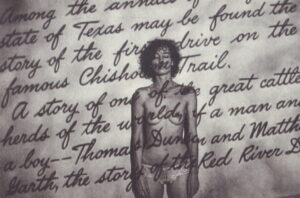 Among the annals of
state of Texas may be found the
story of the first drive on the
famous Chisholm Trail.
A story of one of the great cattle
herds of the world, of a man and
a boy--Thomas Dunson and Matth
Garth, the story of the Red River D